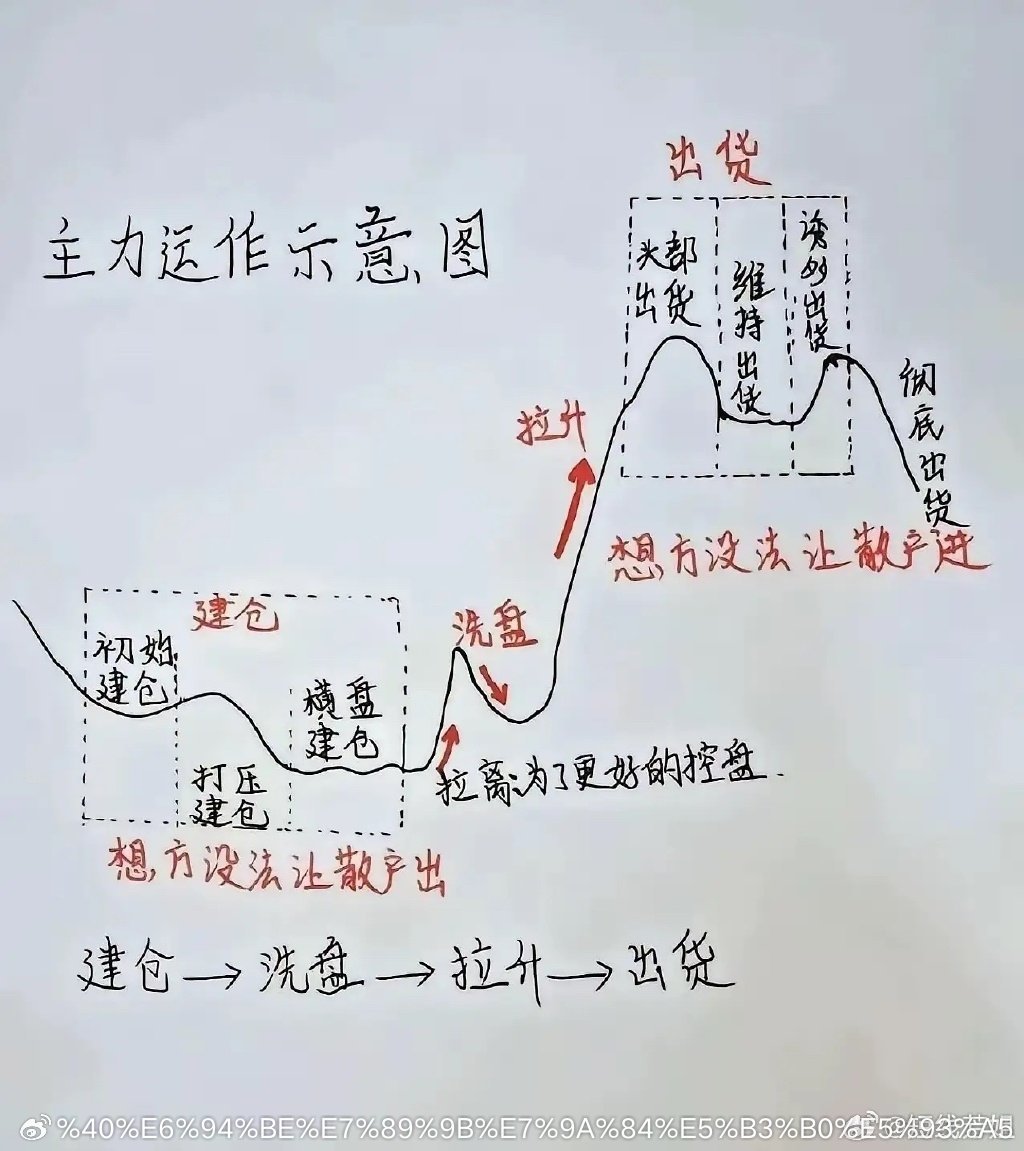 出货
主力运作示意图
头部
出货
维持出货
诱多出货
彻底出货
拉升
想方设法让散户进
建仓
初始
建仓
洗盘
横盘
建仓
打压
建仓
拉离:为了更好的控盘.
想方设法让散户出
建仓→洗盘→拉升→出货
%40%E6%94%BE%E7%89%9B%E7%9A%84%E5%B3%B0%E5%93%A5